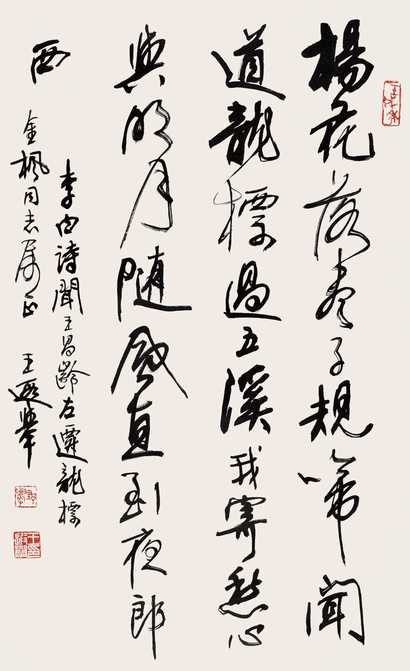 楊花落盡子規啼聞
道龍標過五溪我寄愁心
與明月隨風直到夜郎
西
李白詩聞王昌齡左遷龍標
金楓同志屬正 王遐舉